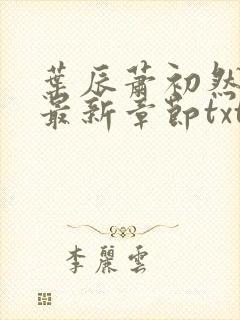 葉辰蕭初然
最新章節txt
李麗雲